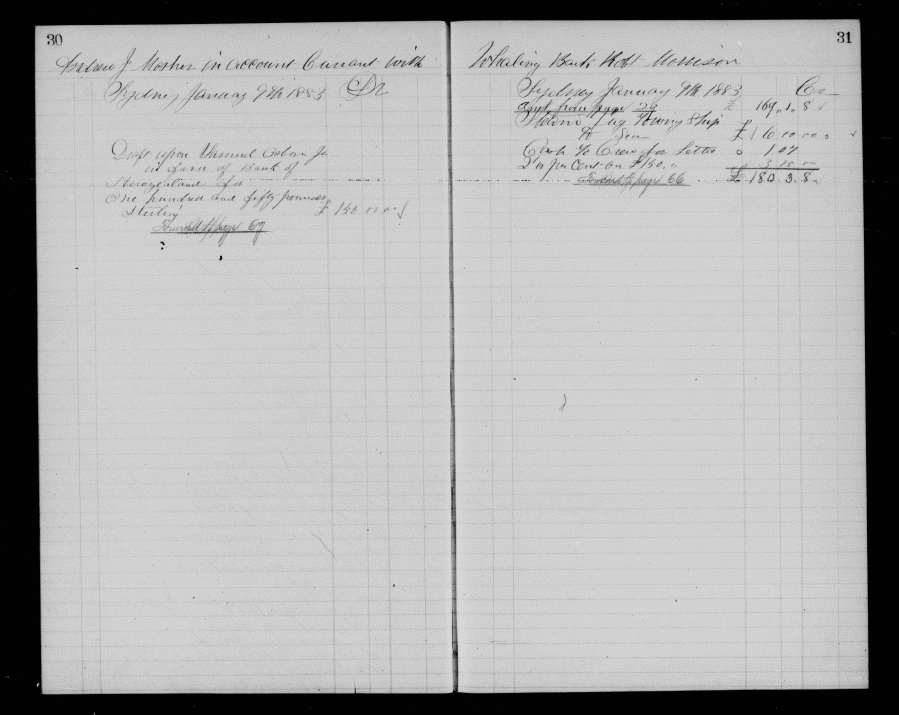 30
J Mosher in account Currant with
Sydney January 9th 1883 Dr
Draft upon Samuel Osborn Jr
in favor of Bank of
Newzealand for
One hundred and fifty pounds
Sterling £ 150 00 00
Forward to page 67
31
Whaling Bark Robt Morrison
Sydney January 9th 1883 Cr
Amt from page 29 £ 169 1 8
Steam Tug Towing Ship
To Sea £ 6 00 00
Cash to Crew for Letter 0 1 07
2 1/2 per Cent on £ 150 3 15 00
Forward to page 66 £ 180 3 8